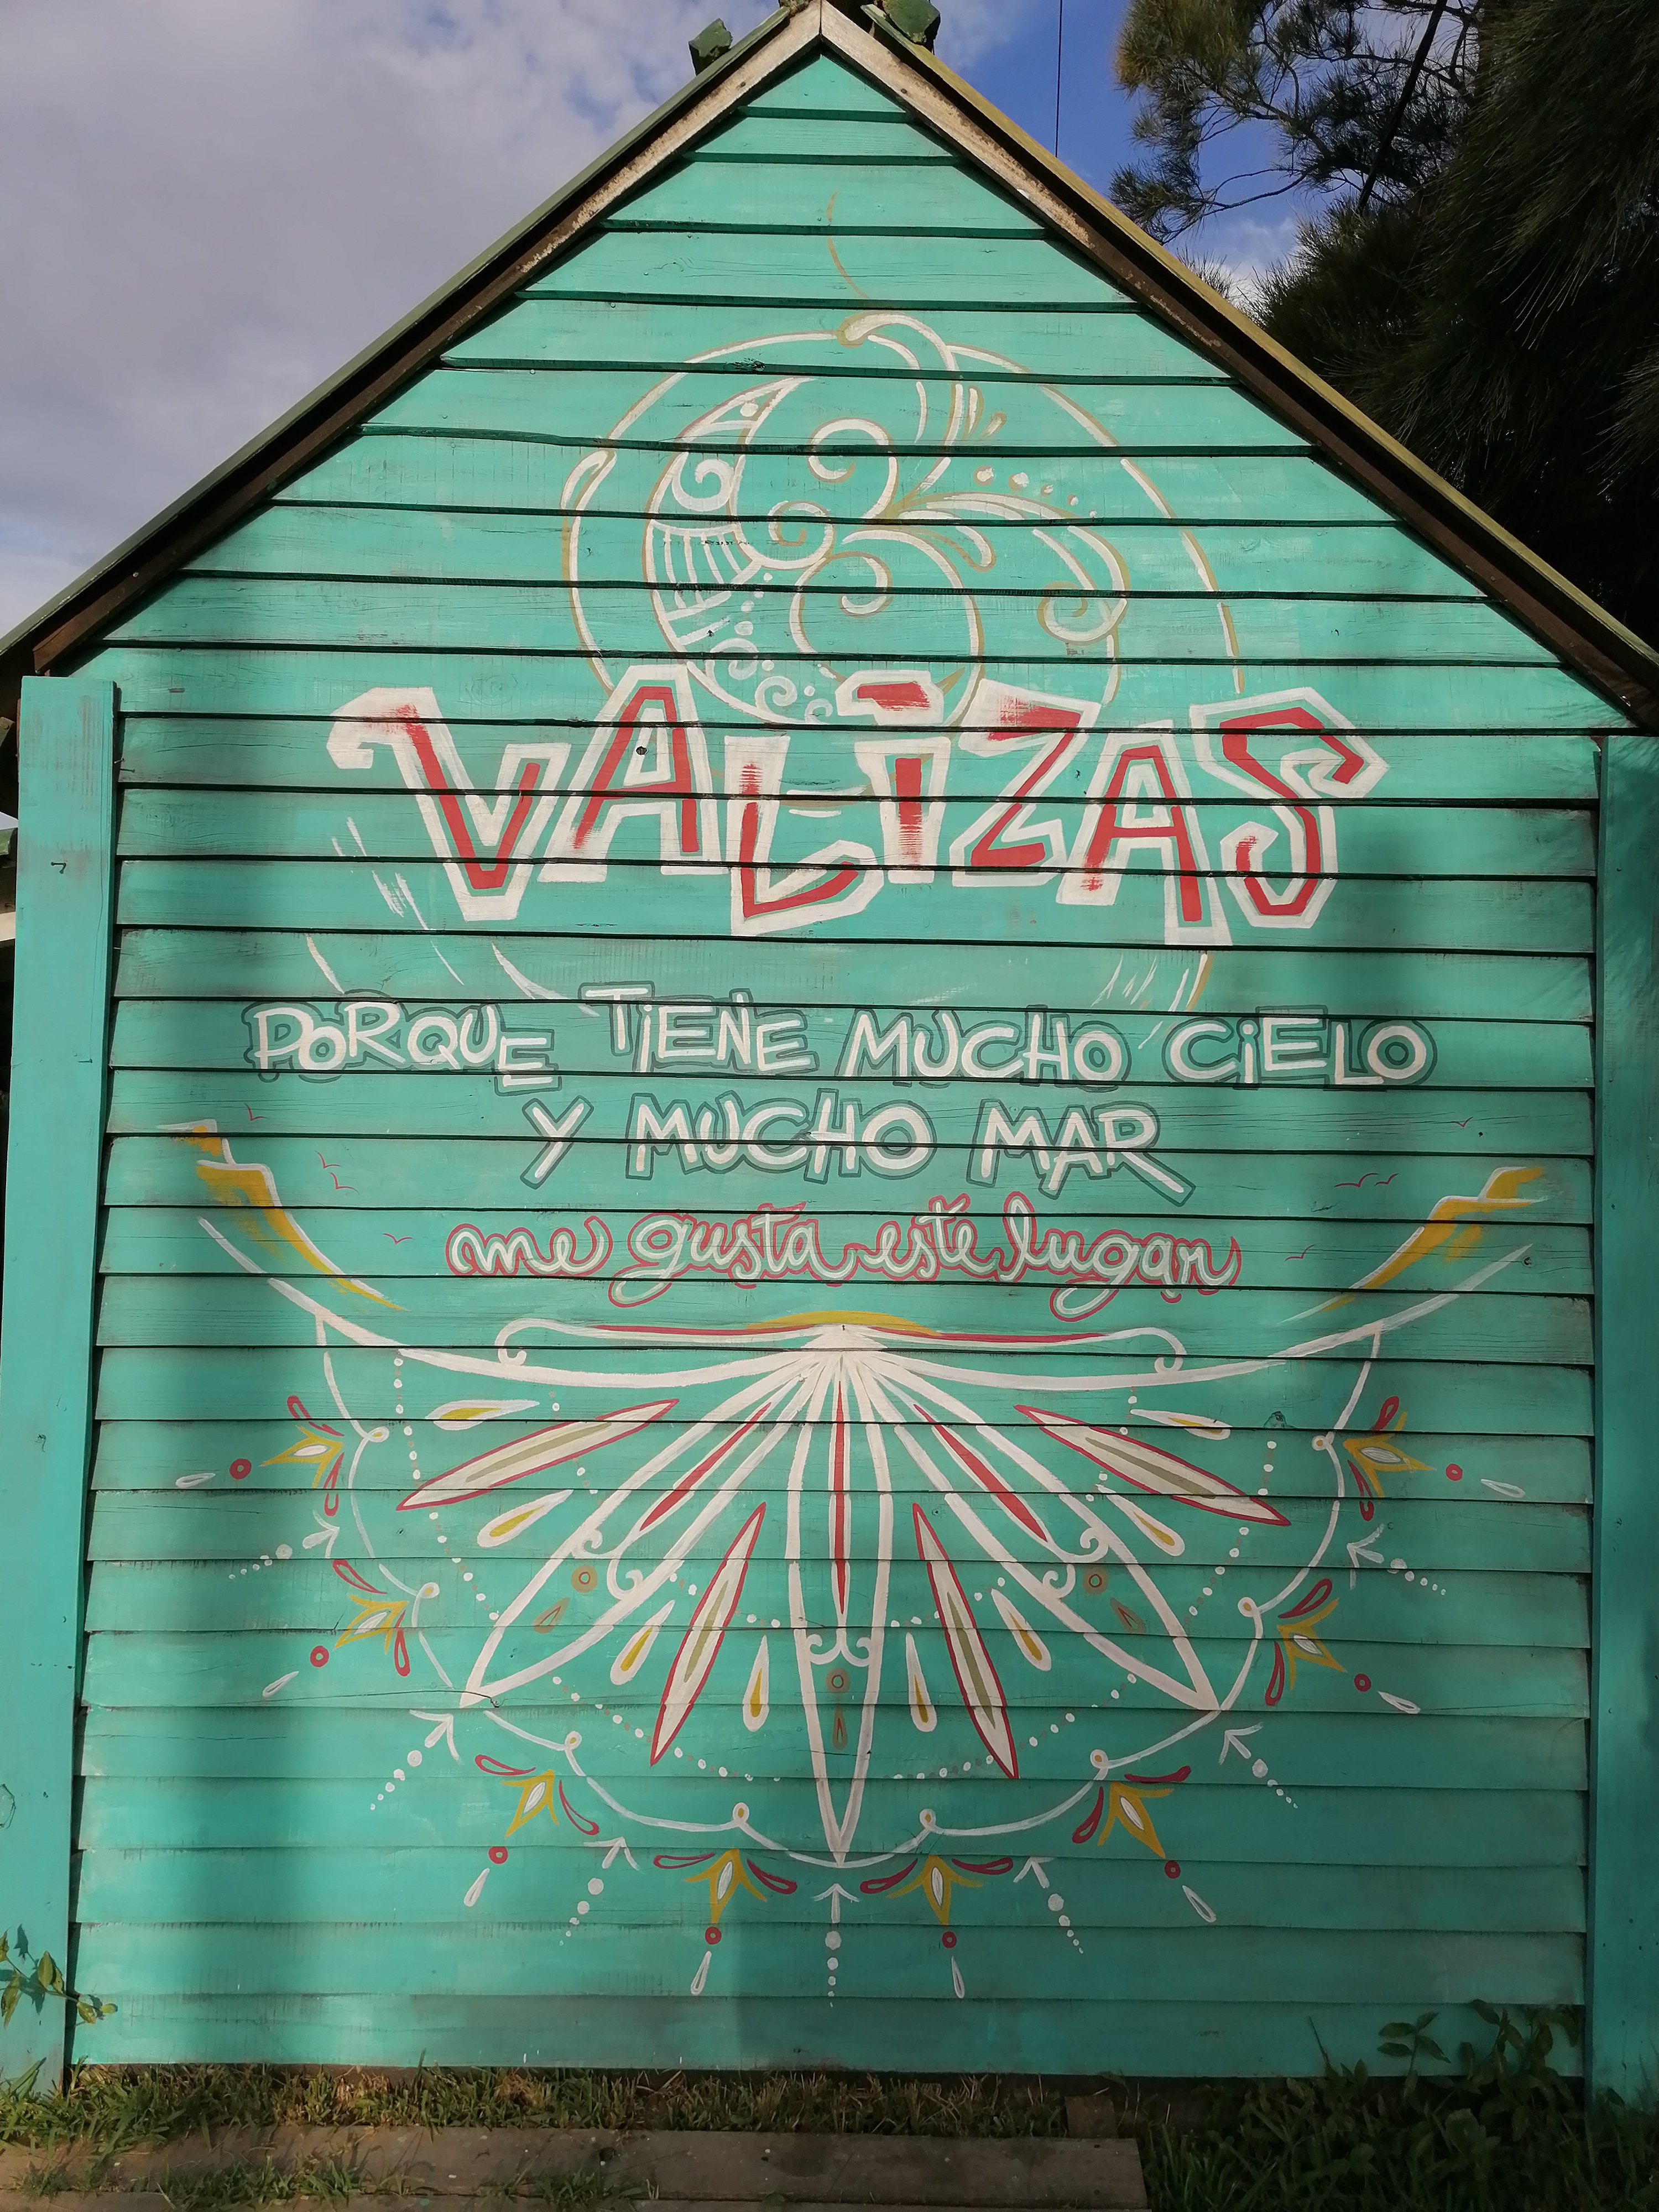 VALiZAS
PORQUE TiENE MUCHO CiELO
Y MUCHO MAR
me gusta este lugar